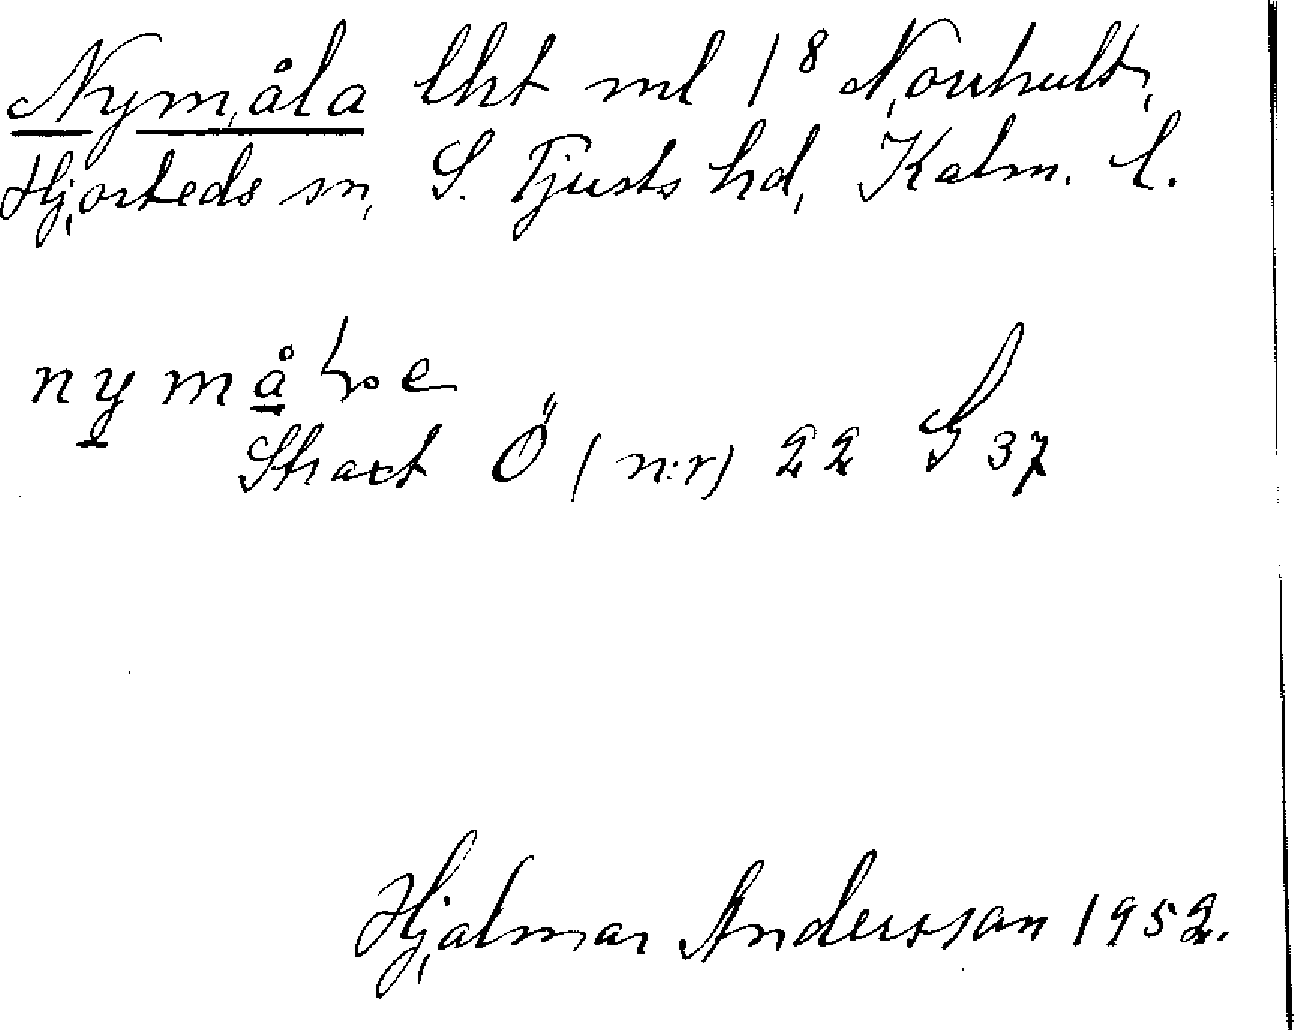 Nymåla lht ml 1⁸ Norrhult,
Hjorteds sn, S. Tjusts hd, Kalm. l.
nymå e
Strax Ö (n:r) 22 S 37
Hjalmar Andersson 1952.